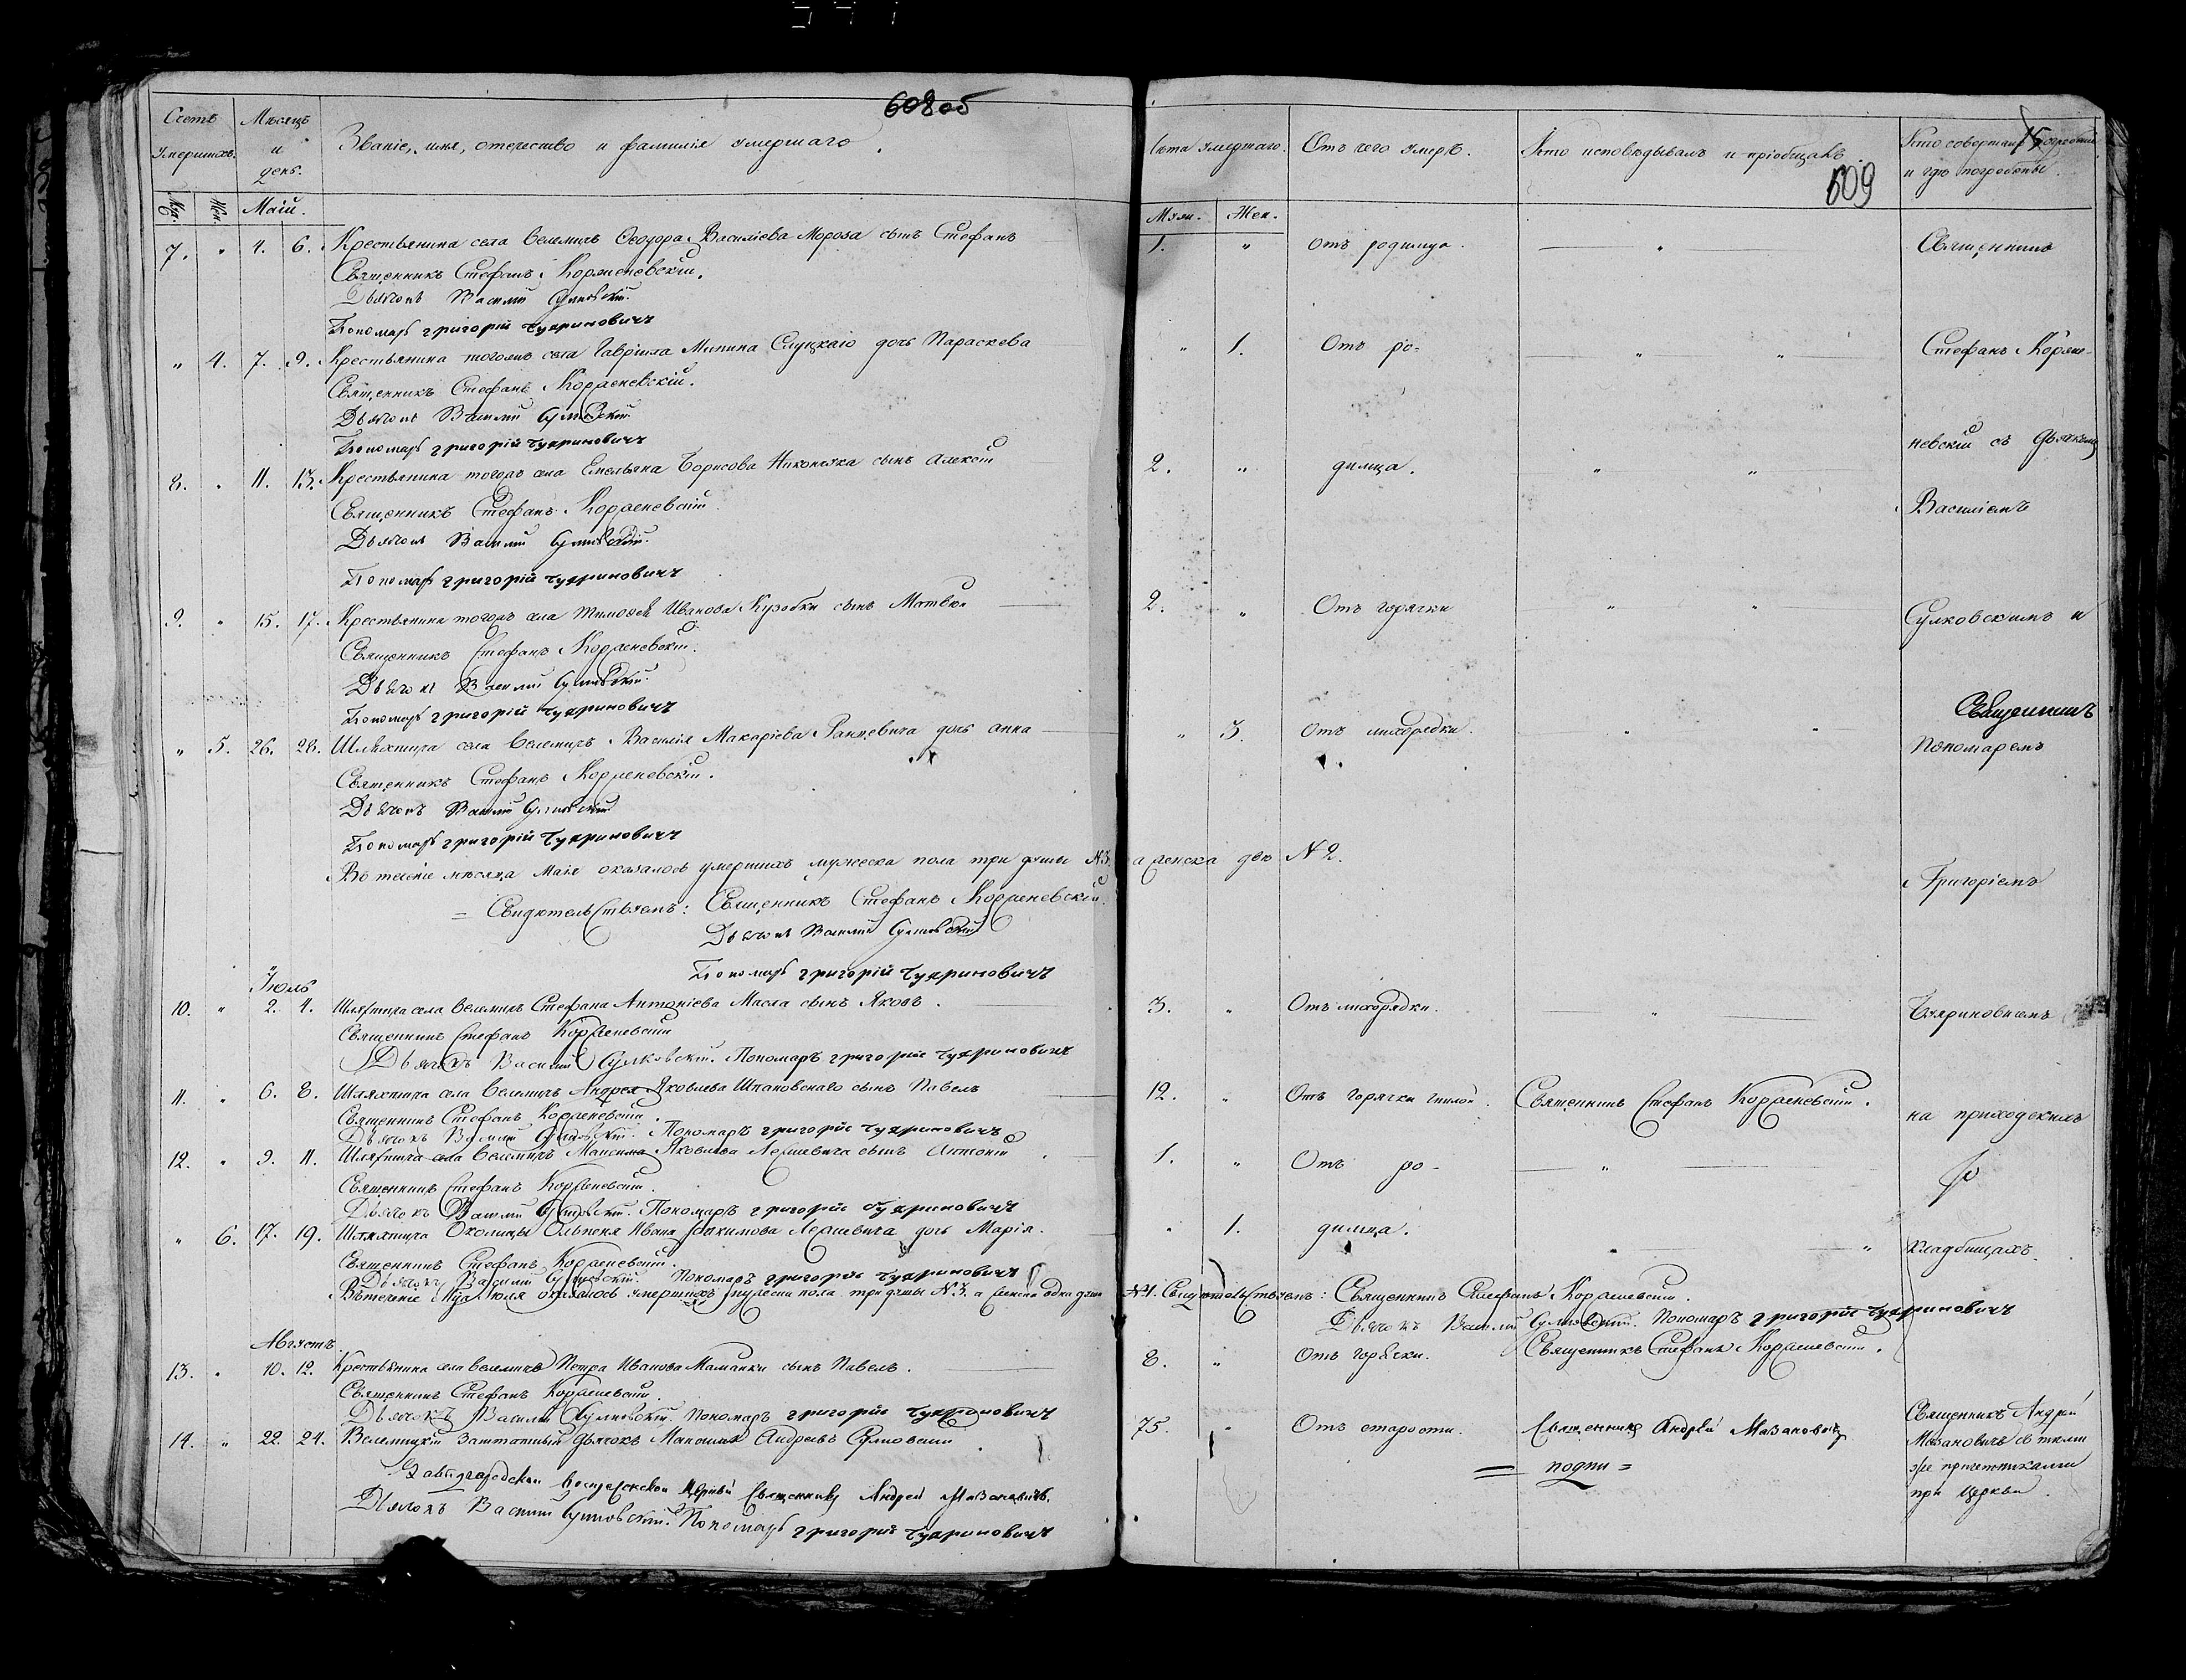 608 об
Счетъ умершихъ.
Мѣсяцъ и день.
Званіе, имя, отечество и фамилія умершаго.
Муж. Жен. Маій.
7. " 4. 6. Крестьянина села Велемичъ Ѳеодора Васильева Мороза сынъ Стефанъ
Священникъ Стефанъ Корженевскій.
Дьячокъ Василій Сулковскій.
Пономарь Григорій Тихриновичъ
" 4. 7. 9. Крестьянина тогожъ села Гавріила Минина Слуцкаго дочь Параскева
Священникъ Стефанъ Корженевскій.
Дьячокъ Василій Сулковскій
Пономарь Григорій
8. " 11. 13. Крестьянина тогожъ села Емельяна Борисова сынъ Алексій
Священникъ Стефанъ Корженевскій
Дьячокъ Василій Сулковскій.
Пономарь Григорій
9. " 15. 17. Крестьянина тогожъ села Тимоѳея Иванова сынъ Матвѣй
Священникъ Стефанъ Корженевскій.
Дьячокъ Василій Сулковскій.
Пономарь Григорій
" 5. 26. 28. Шляхтича села Велемичъ Василія Макаріева Ранцевича дочь Анна
Священникъ Стефанъ Корженевскій.
Дьячокъ Василій Сулковскій
Пономарь Григорій
Въ теченіе мѣсяца Маія оказалось умершихъ мужеска пола три души №3. а женска двѣ №2.
= Свидѣтельствуемъ: Священникъ Стефанъ Корженевскій.
Дьячокъ Василій Сулковскій
Пономарь Григорій
Іюль
10. " 2. 4. Шляхтича села Велемичъ Стефана Антоніева Масла сынъ Яковъ.
Священникъ Стефанъ Корженевскій
Дьячокъ Василій Сулковскій. Пономарь Григорій
11. " 6. 8. Шляхтича села Велемичъ Андрея Яковлева Шпаковскаго сынъ Павелъ
Священникъ Стефанъ Корженевскій.
Дьячокъ Василій Сулковскій. Пономарь Григорій
12. " 9. 11. Шляхтича села Велемичъ Максима Яковлева сынъ Антоній
Священникъ Стефанъ Корженевскій.
Дьячокъ Василій Сулковскій. Пономарь Григорій
" 6. 17. 19. Шляхтича Околицы Ольпеня Ивана Іоакимова дочь Марія.
Священникъ Стефанъ Корженевскій.
Дьячокъ Василій Сулковскій. Пономарь Григорій
Въ теченіе Іюля оказалось умершихъ мужеска пола три души №3. а женска одна душа №1. Свидѣтельствуемъ: Священникъ Стефанъ Корженевскій.
Дьячокъ Василій Сулковскій. Пономарь Григорій
Августъ.
13. " 10. 12. Крестьянина села Велемичъ Петра Иванова Маманки сынъ Павелъ.
Священникъ Стефанъ Корженевскій.
Дьячокъ Василій Сулковскій. Пономарь Григорій
14. " 22. 24. Велемицкій заштатный дьячокъ Андреевъ Сулковскій
церкви Священникъ Андрей Мазановичъ.
Дьячокъ Василій Сулковскій. Пономарь Григорій
15
609
Лѣта умершаго.
Отъ чего умеръ.
Кто исповѣдывалъ и пріобщалъ.
Кто совершалъ погребеніе и гдѣ погребены.
Муж. Жен.
1. " Отъ родимца. " Священникъ
" 1. Отъ ро- " " Стефанъ Корже-
невскій съ дьячкомъ
2. " димца. " "
Василіемъ
2. " Отъ горячки " " Сулковскимъ и
Священникъ
" 3. Отъ лихорадки. " " Пономаремъ
Григоріемъ
3. " Отъ лихорадки. "
12. " Отъ горячки гнилой. Священникъ Стефанъ Корженевскій. на приходскихъ
1. " Отъ ро- "
" 1. димца. " " кладбищахъ.
8. " Отъ горячки. Священникъ Стефанъ Корженевскій.
75. " Отъ старости. Священникъ Андрей Мазановичъ
Священникъ Андрей
Мазановичъ съ тѣми
же причетниками
при церкви.